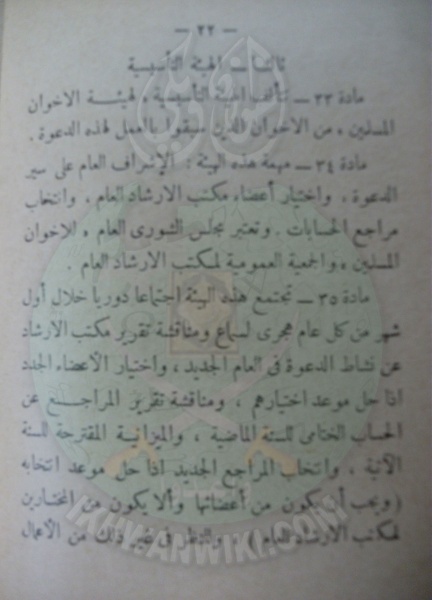 — ٢٢ —
ثالثا — الهيئة التأسيسية
مادة ٣٣ — تتألف الهيئة التأسيسية ، لهيئة الاخوان
المسلمين ، من الاخوان الذين سبقوا بالعمل لهذه الدعوة .
مادة ٣٤ — مهمة هذه الهيئة : الإشراف العام على سير
الدعوة ، واختيار أعضاء مكتب الارشاد العام ، وانتخاب
مراجع الحسابات . وتعتبر مجلس الشورى العام ، للاخوان
المسلمين ، والجمعية العمومية لمكتب الارشاد العام .
مادة ٣٥ — تجتمع هذه الهيئة اجتماعا دوريا خلال أول
شهر من كل عام هجرى لسماع ومناقشة تقرير مكتب الارشاد
عن نشاط الدعوة فى العام الجديد ، واختيار الأعضاء الجدد
اذا حل موعد اختيارهم ، ومناقشة تقرير المراجع عن
الحساب الختامى للسنة الماضية ، والميزانية المقترحة للسنة
الآتية ، وانتخاب المراجع الجديد اذا حل موعد انتخابه
(ويجب أن يكون من أعضائها وألا يكون من المختارين
لمكتب الارشاد العام) . والنظر فى غير ذلك من الأعمال
IKHWANWIKI.COM